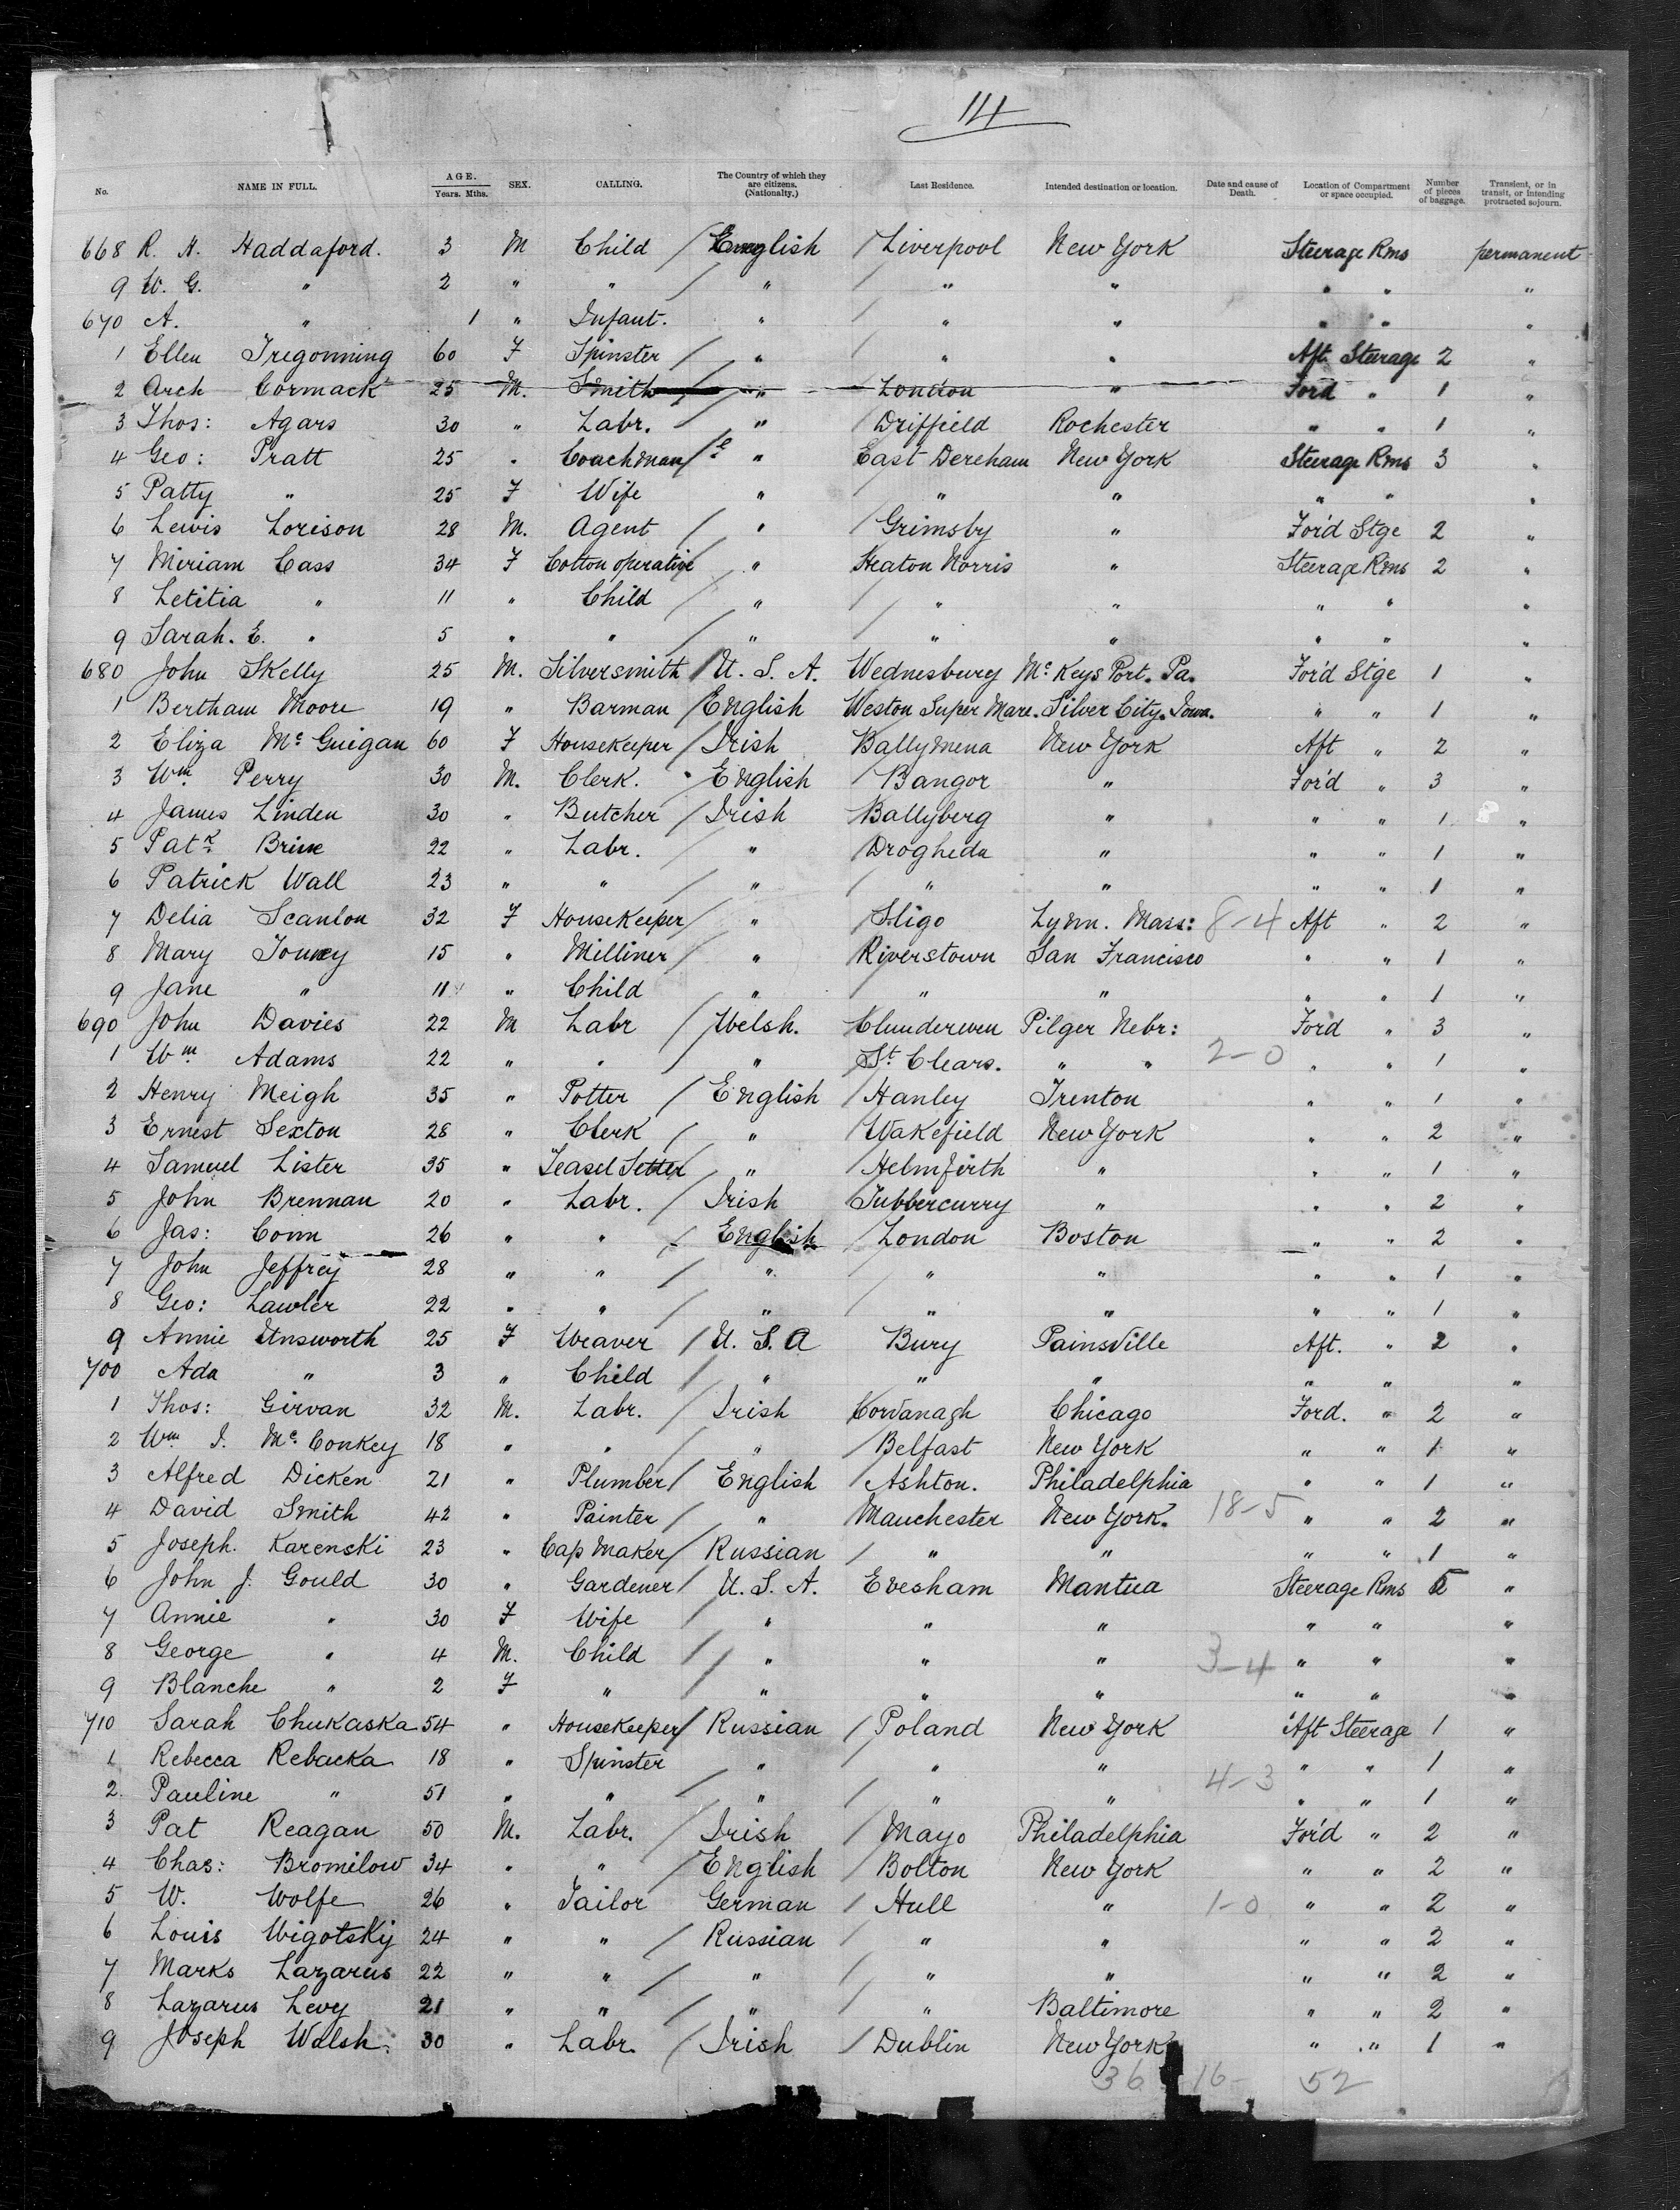 114
No. NAME IN FULL. AGE. Years. Mths. SEX. CALLING. The Country of which they are citizens. (Nationalty.) Last Residence. Intended destination or location. Date and cause of Death. Location of Compartment or space occupied. Number of pieces of baggage. Transient, or in transit, or intending protracted sojourn.
668 R. H. Haddaford. 3 M Child / English / Liverpool New York Steerage Rms permanent
9 W. G. " 2 " " / " " " " " "
670 A. " 1 " Infant. " / " " " " "
1 Ellen Tregonning 60 F Spinster / " / " " Aft Steerage 2 "
2 Arch Cormack 25 M. Smith / " London " Ford " 1 "
3 Thos: Agars 30 " Labr. / " / Driffield Rochester " " 1 "
4 Geo: Pratt 25 " Coachman / " East Dereham New York Steerage Rms 3 "
5 Patty " 25 F Wife " / " " " " "
6 Lewis Lorison 28 M. Agent / " / Grimsby " For'd Stge 2 "
7 Miriam Cass 34 F Cotton operative " Heaton Norris " Steerage Rms 2 "
8 Letitia " 11 " Child / " / " " " " "
9 Sarah. E. " 5 " " / " " " " " "
680 John Skelly 25 M. Silversmith / U. S. A. Wednesbury Mc Keys Port. Pa. For'd Stge 1 "
1 Bertham Moore 19 " Barman / English Weston Super Mare. Silver City. Iowa. " " 1 "
2 Eliza Mc Guigan 60 F Housekeeper / Irish Ballymena New York Aft " 2 "
3 Wm Perry 30 M. Clerk. " English / Bangor " For'd " 3 "
4 James Linden 30 " Butcher / Irish / Ballyberg " " " 1 "
5 Patk Brine 22 " Labr. / " / Drogheda " " " 1 "
6 Patrick Wall 23 " " / " / " " " " 1 "
7 Delia Scanlon 32 F Housekeeper / " / Sligo Lynn. Mass: 8-4 Aft " 2 "
8 Mary Touney 15 " Milliner / " / Riverstown San Francisco " " 1 "
9 Jane " 11 " Child " / " " " " 1 "
690 John Davies 22 M Labr / Welsh. Clunderwen Pilger Nebr: Ford " 3 "
1 Wm Adams 22 " " / " St Clears. " " 2-0 " " 1 "
2 Henry Meigh 35 " Potter / English / Hanley Trenton " " 1 "
3 Ernest Sexton 28 " Clerk / " / Wakefield New York " " 2 "
4 Samuel Lister 35 " Teasel Setter / " / Helmfirth " " " 1 "
5 John Brennan 20 " Labr. / Irish Tubbercurry " " " 2 "
6 Jas: Conn 26 " " / English / London Boston " " 2 "
7 John Jeffrey 28 " " / " / " " " " 1 "
8 Geo: Lawler 22 " " / " / " " " " 1 "
9 Annie Unsworth 25 F Weaver / U. S. A Bury PainsVille Aft. " 2 "
700 Ada " 3 " Child / " " " " " "
1 Thos: Girvan 32 M. Labr. / Irish Corvanagh Chicago Ford. " 2 "
2 Wm J. Mc Conkey 18 " " / " / Belfast New York " " 1 "
3 Alfred Dicken 21 " Plumber / English / Ashton. Philadelphia " " 1 "
4 David Smith 42 " Painter / " / Manchester New York. 18-5 " " 2 "
5 Joseph. Karenski 23 " Cap Maker / Russian / " " " " 1 "
6 John J. Gould 30 " Gardener / U. S. A. Evesham Mantua Steerage Rms 5 "
7 Annie " 30 F Wife / " " " " " "
8 George " 4 M. Child / " " " 3-4 " " "
9 Blanche " 2 F " / " " " " " "
710 Sarah Chukaska 54 " Housekeeper / Russian / Poland New York Aft Steerage 1 "
1 Rebecca Rebacka 18 " Spinster " / " " " " 1 "
2 Pauline " 51 " " / " / " " 4-3 " " 1 "
3 Pat Reagan 50 M. Labr. / Irish / Mayo Philadelphia For'd " 2 "
4 Chas: Bromilow 34 " " / English / Bolton New York " " 2 "
5 W. Wolfe 26 " Tailor German / Hull " 1-0 " " 2 "
6 Louis Wigotskij 24 " " / Russian / " " " " 2 "
7 Marks Lazarus 22 " " / " / " " " " 2 "
8 Lazarus Levy 21 " " / " / " Baltimore " " 2 "
9 Joseph Walsh. 30 " Labr. / Irish / Dublin New York " " 1 "
36 16- 52